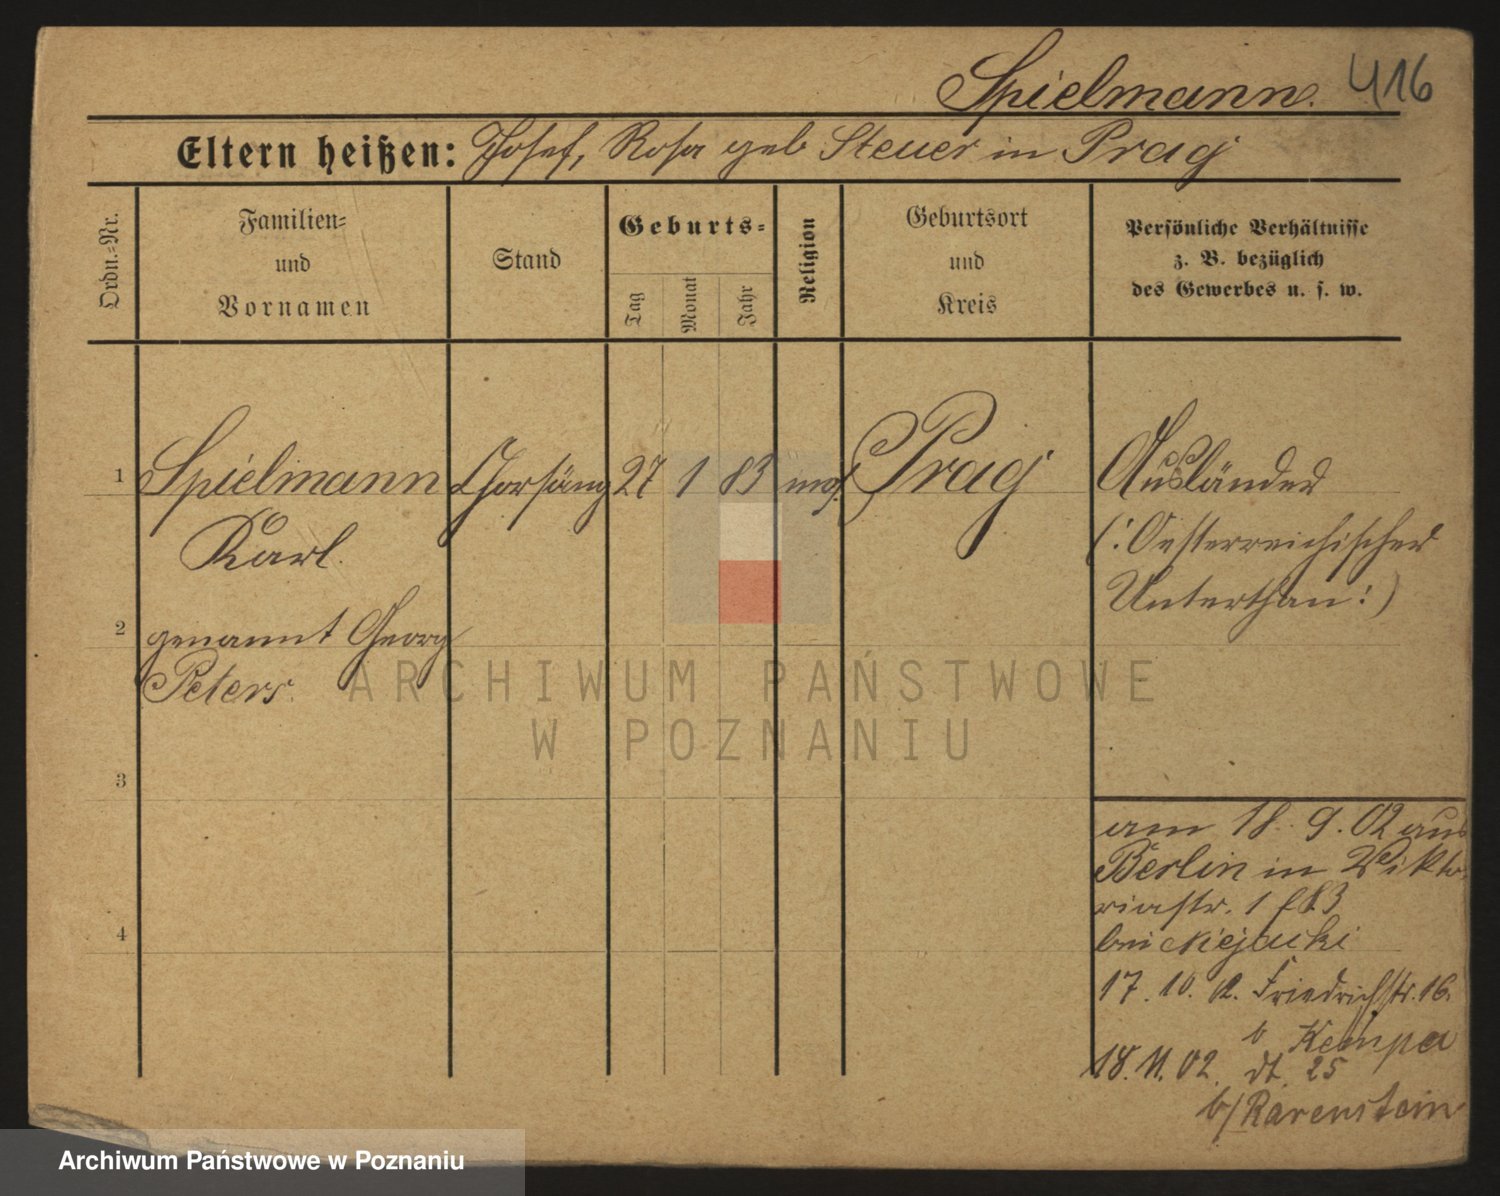 Spielmann. 416
Eltern heißen: Josef, Rosa geb Steuer in Prag
Ordn.=Nr.
Familien=
und
Vornamen
Stand
Geburts=
Tag
Monat
Jahr
Religion
Geburtsort
und
Kreis
Persönliche Verhältnisse
z. B. bezüglich
des Gewerbes u. s. w.
1 Spielmann Chorsäng 27 1 83 mos. Prag Ausländer
Karl.
(: Oesterreichischer
Unterthan :)
2 genannt Georg
Peters.
3
4
am 18. 9. 02 aus
Berlin in Vikto
riastr. 1
bei
17. 10. 02. Friedrichstr. 16.
b Kempa
18. 11. 02. dt. 25
b/ Bärenstein
ARCHIWUM PAŃSTWOWE
W POZNANIU
Archiwum Państwowe w Poznaniu